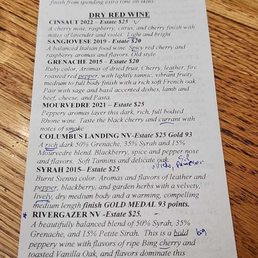 finish from spending extra time on skins.
DRY RED WINE
CINSAUT 2022 - Estate $25
A cherry nose, raspberry, citrus, and cherry finish with
notes of lavender and violet. Light and bright
SANGIOVESE 2019 - Estate $20
A balanced Italian food wine. Spicy red cherry and
raspberry aromas and flavors. Old style
GRENACHE 2015 - Estate $20
Ruby color, Aromas of dried fruit. Cherry, leather, fire
roasted red pepper, with lightly tannic, vibrant fruity
medium to full body finish with a rich soft French oak.
Pair with sage and basil accented dishes, lamb and
beef, cheese, and Pasta.
MOURVEDRE 2021 – Estate $25
Peppery aromas layer this dark, rich, full bodied
Rhone wine. Taste the black cherry and currant with
notes of smoke
COLUMBUS LANDING NV -Estate $25 Gold 93
A rich dark 50% Grenache, 35% Syrah and 15%
Mourvedre blend. Blackberry, spice and pepper nose
and flavors. Soft Tannins and delicate oak.
SYRAH 2015– Estate $25
Burnt Sienna color. Aromas and flavors of leather and
pepper, blackberry, and garden herbs with a velvety,
lively, dry medium body and a warming, compelling
medium length finish GOLD MEDAL 93 points.
RIVERGAZER NV -Estate $25
A beautifully balanced blend of 50% Syrah, 35%
Grenache, and 15% Petite Sirah. This is a bold
peppery wine with flavors of ripe Bing cherry and
roasted Vanilla Oak, and flavors dominate this